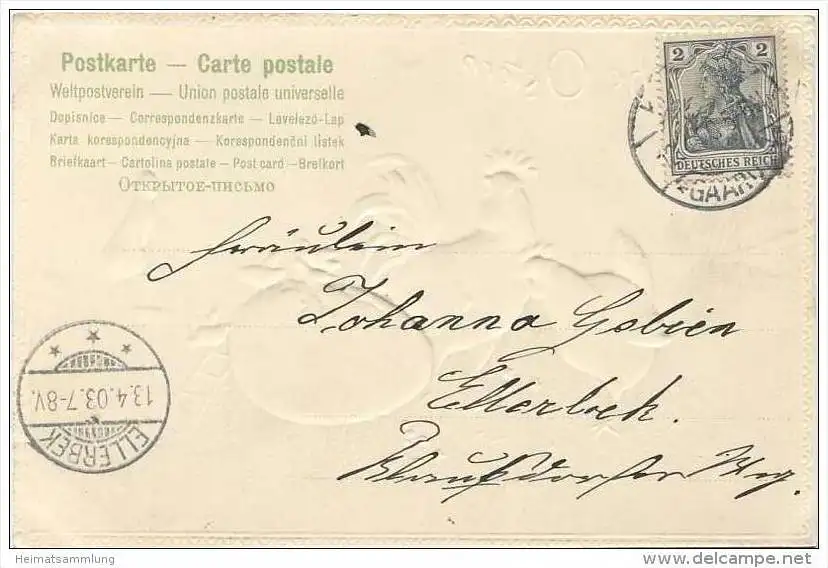 Postkarte — Carte postale
Weltpostverein — Union postale universelle
Dopisnice — Correspondenzkarte — Levelező-Lap
Karta korespondencyjna — Korespondenční listek
Briefkaart — Cartolina postale — Post card — Brefkort
Открытое-письмо
2 2
DEUTSCHES REICH
GAARDEN
Fräulein
Johanna Gebien
Ellerbek.
Klausdorfer Weg.
13.4.03.7-8V.
ELLERBEK
Heimatsammlung
www.delcampe.net